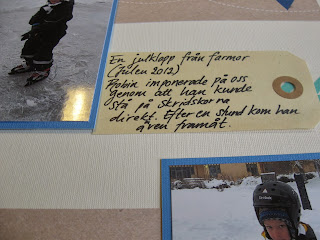 En julklapp från farmor
(Julen 2012)
Robin imponerade på oss
genom att han kunde
stå på skridskorna
direkt. Efter en stund kom han
även framåt.